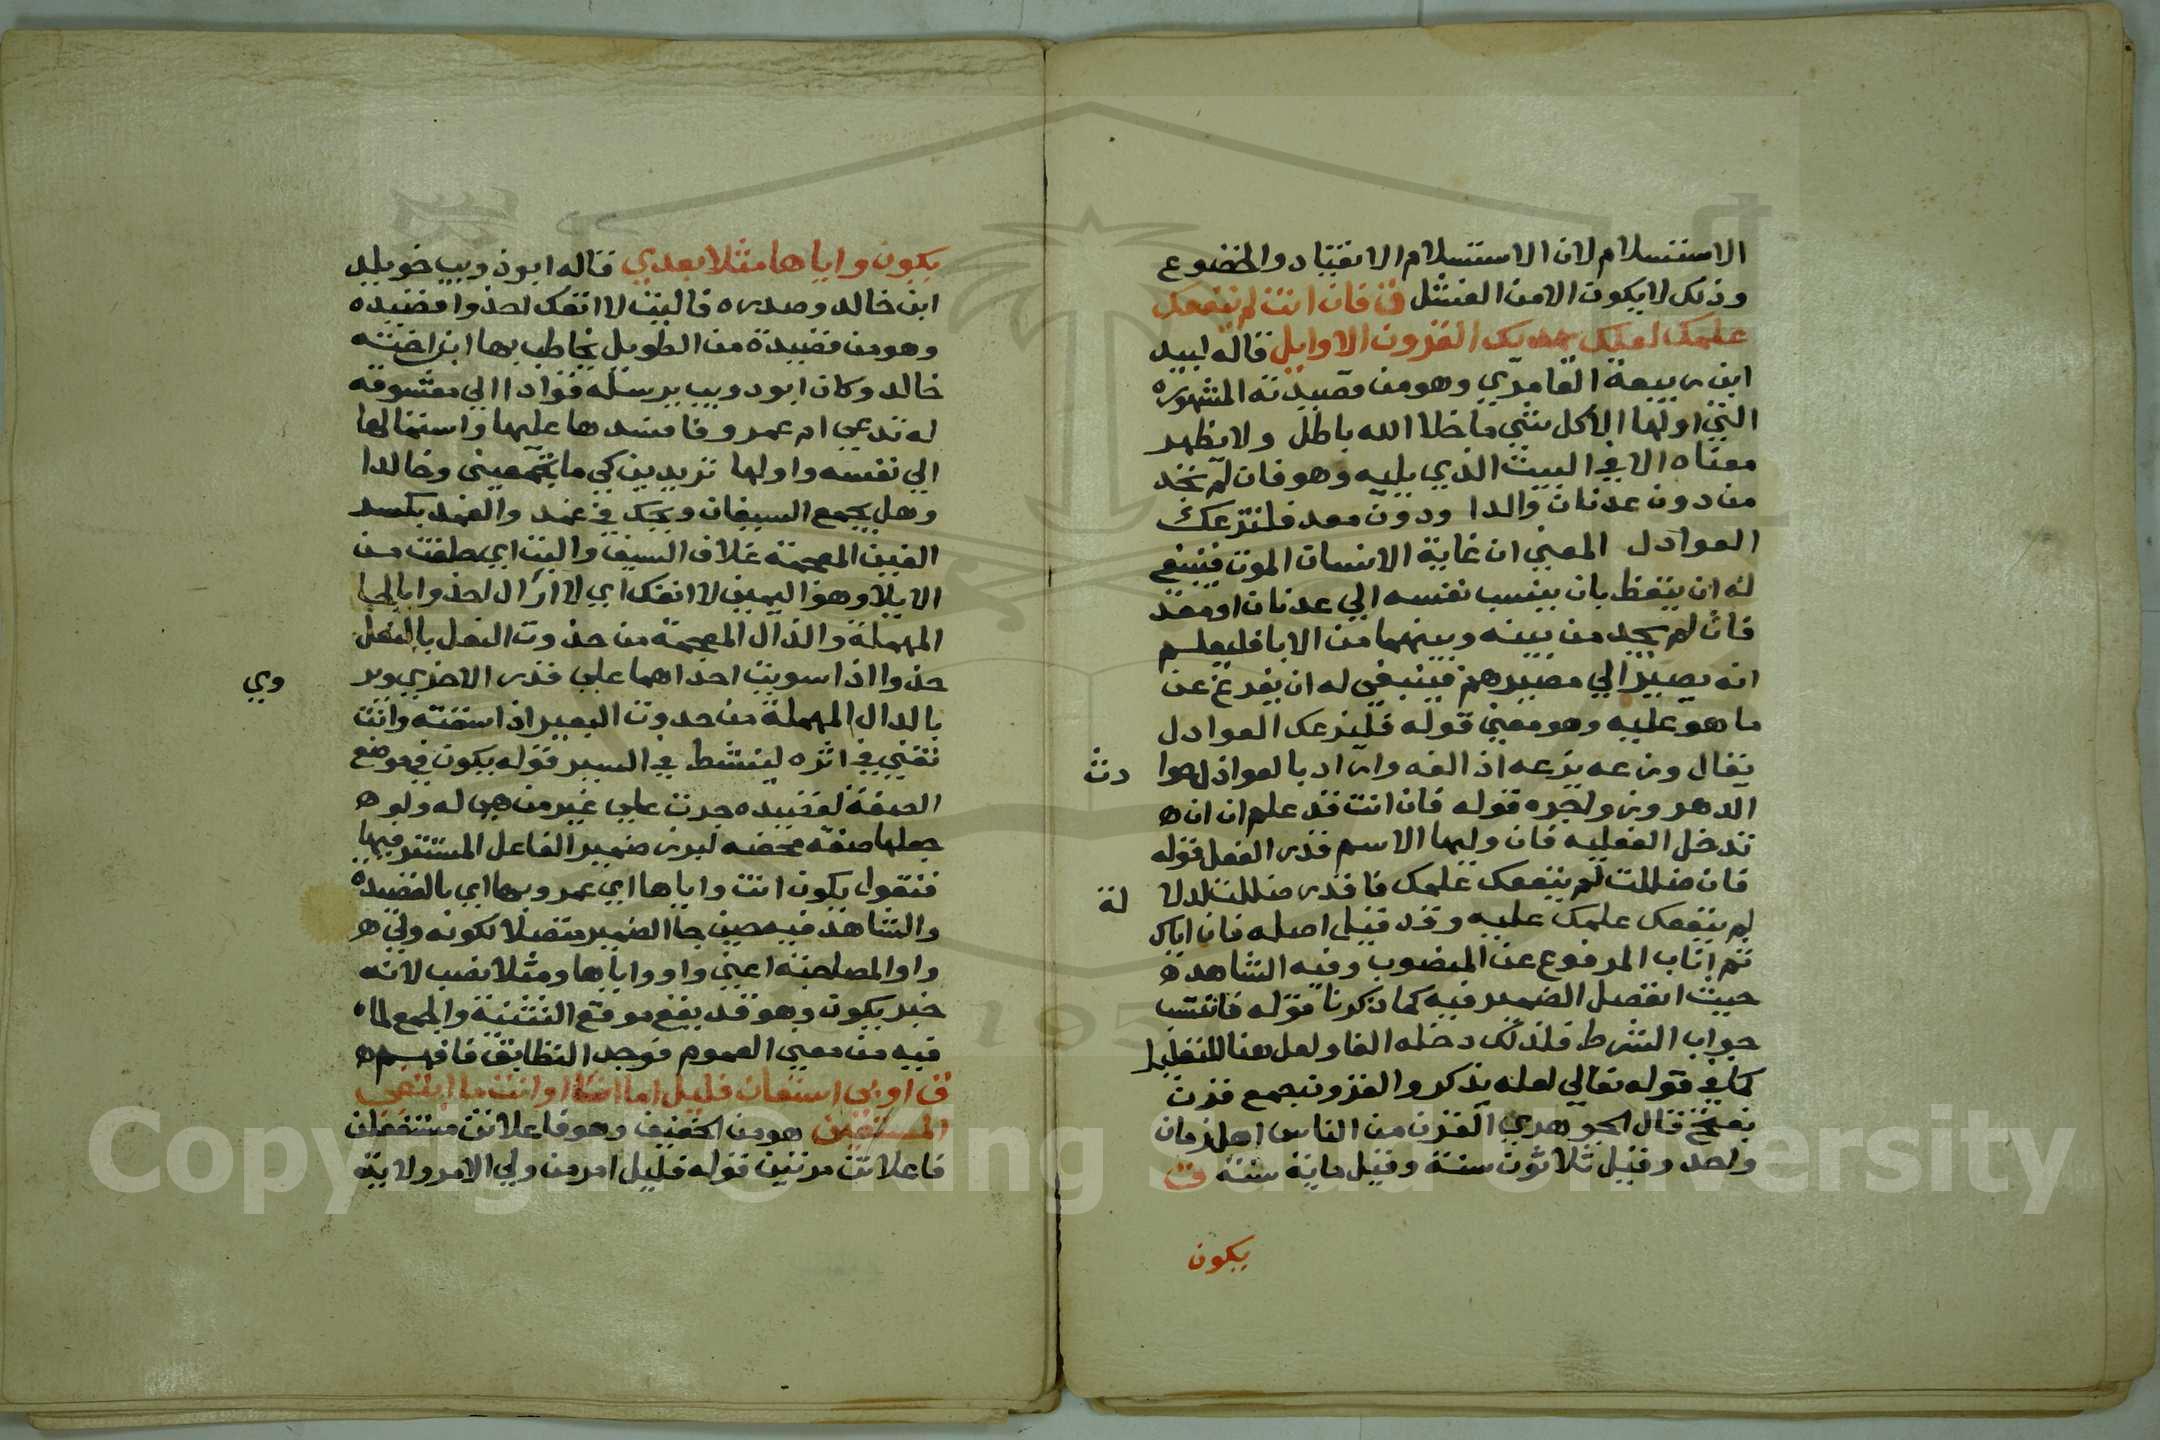 الاستسلام لان الاستسلام الانقياد والخضوع
وذلك لا يكون الا من الفشل ق فان انت لم ينفعك
علمك لعلك يهديك القرون الاوايل قاله لبيد
ابن ربيعة العامري وهو من قصيدته المشهورة
التي اولها الا كل شي ما خلا الله باطل ولا يظهر
معناه الا في البيت الذي يليه وهو فان لم تجد
من دون عدنان والدا ودون معد فلتزعك
العوادل المعني ان غاية الانسان الموت فينبغي
له ان يتعظ بان ينسب نفسه الي عدنان او معد
فان لم يجد من بينه وبينهما من الابا فليعلم
انه يصير الي مصيرهم فينبغي له ان يفرغ عن
ما هو عليه وهو معني قوله فليزعك العوادل
يقال وزعه يزعه اذا لفه واراد بالعواذل حوا دث
الدهر وزواجره قوله فان انت قد علم ان ان ه
تدخل الفعليه فان وليها الاسم قدر الفعل قوله
فان ضللت لم ينفعك علمك فاقدر ضللت لدلا لة
لم ينفعك علمك عليه وقد قيل اصله فان اياك
ثم اناب المرفوع عن المنصوب وفيه الشاهد ه
حيث انفصل الضمير فيه كما ذكرنا قوله فانتسب
جواب الشرط فلذلك دخله الفا ولعل هنا للتعليل
كما في قوله تعالي لعله يذكر والقرون جمع قرن
بفتح قال الجوهري القرن من الناس اهل زمان
واحد وقيل ثلاثون سنة وقيل ماية سنة ق
يكون
يكون واياها مثلا بعدي قاله ابو ذويب خويلد
ابن خالد وصدره فاليت لا انفك احذوا قصيده
وهو من قصيدة من الطويل يخاطب بها ابن اخته
خالد وكان ابو دويب يرسله قوادا الي معشوقة
له تدعي ام عمرو فافسدها عليها واستمالها
الي نفسه واولها تريدين كي ما تجمعيني وخالدا
وهل يجمع السيفان ويحك في غمد والغمد بكسر
الغين المعجمة غلاف السيف واليت اي حلفت من
الايلا وهو اليمين لا انفك اي لا ازال احذوا بالحا
المهملة والذال المعجمة من حذوت النعل بالنعل
حذوا اذا سويت احداهما علي قدر الاخري وير وي
بالدال المهملة من حدوت البعير اذا سقته وانت
تغني في اثره لينشط في السير قوله يكون في موضع
الصفة لقصيده جرت علي غير من هي له ولو ه
جعلها صفة محضه لبرز ضمير الفاعل المستتر فيها
فتقول يكون انت واياها اي عمرو بها اي بالقصيدة
والشاهد فيه حيث جا الضمير متصلا لكونه ولي ه
واو المصاحبة اعني واو واياها ومثلا نصب لانه
خبر يكون وهو قد يقع موقع التثنية والجمع لما ه
فيه من معني العموم فوجد التطابق فافهم ه
ق او بي استعان فليل اما انا او انت ما ابتغي
المستعين هو من الخفيف وهو فاعلاتن مستفعلن
فاعلاتن مرتين قوله فليل امر من ولي الامر ولاية